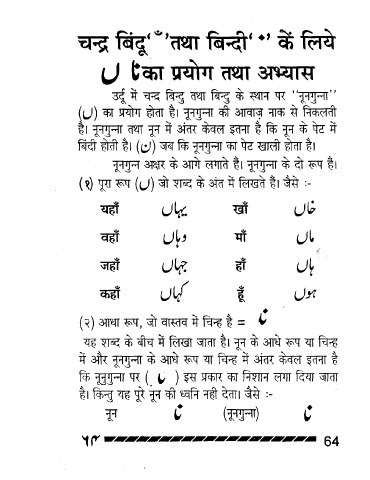 चन्द्र बिंदू 'ँ' तथा बिन्दी '·' कें लिये
ں نا का प्रयोग तथा अभ्यास
उर्दू में चन्द्र बिन्दु तथा बिन्दु के स्थान पर "नूनगुन्ना"
(ں) का प्रयोग होता है। नूनगुन्ना की आवाज़ नाक से निकलती
है। नूनगुन्ना तथा नून में अंतर केवल इतना है कि नून के पेट में
बिंदी होती है। (ن) जब कि नूनगुन्ना का पेट खाली होता है।
नूनगुन्न अक्षर के आगे लगाते हैं। नूनगुन्ना के दो रूप है।
(१) पूरा रूप (ں) जो शब्द के अंत में लिखते हैं। जैसे :-
यहाँ یہاں खाँ خاں
वहाँ وہاں माँ ماں
जहाँ جہاں हाँ ہاں
कहाँ کہاں हूँ ہوں
(२) आधा रूप, जो वास्तव में चिन्ह है =
यह शब्द के बीच में लिखा जाता है। नून के आधे रूप या चिन्ह
में और नूनगुन्ना के आधे रूप या चिन्ह में अंतर केवल इतना है
कि नूनुगुन्ना पर ( ) इस प्रकार का निशान लगा दिया जाता
है। किन्तु यह पूरे नून की ध्वनि नही देता। जैसे :-
नून نا (नूनगुन्ना) نا
۶۴ 64